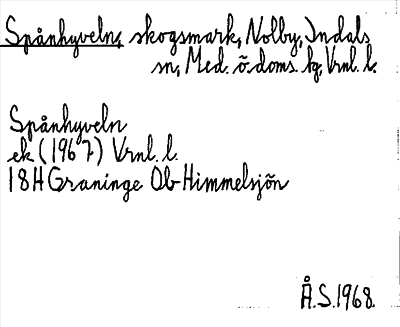 Spånhyveln, skogsmark, Nolby, Indals
sn, Med. ö. doms. lg, Vrnl. l.
Spånhyveln
ek (1967) Vrnl. l.
18H Graninge Ob Himmelsjön
Å.S. 1968.